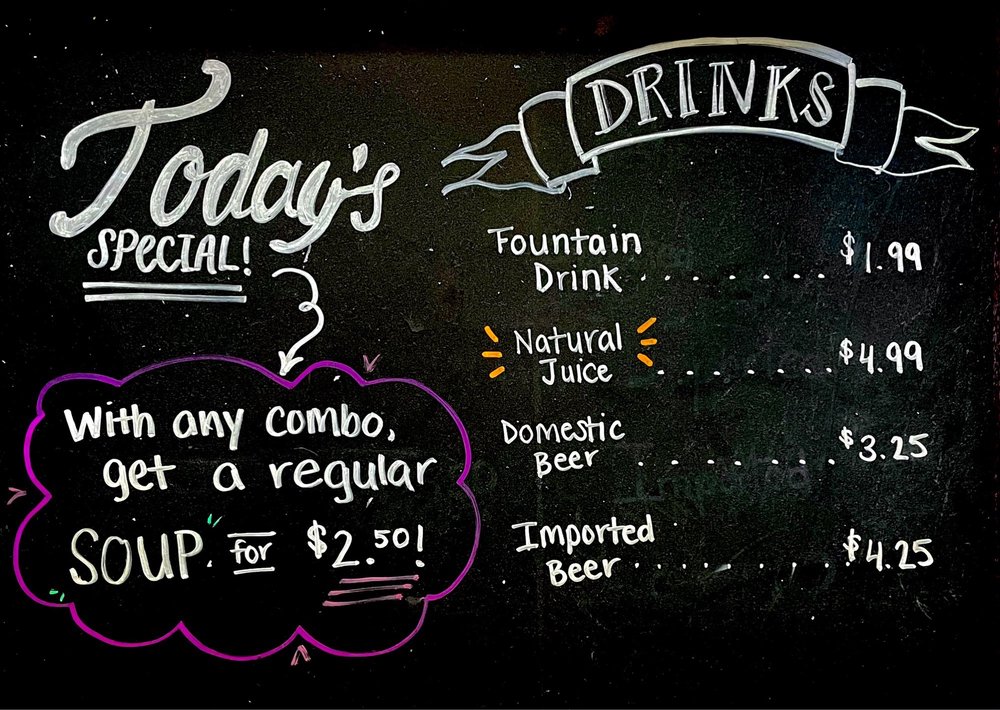 Today's
SPECIAL!
With any combo,
get a regular
SOUP for $2.50!
DRINKS
Fountain
Drink . . . . . . . . $1.99
Natural
Juice . . . . . . . . $4.99
Domestic
Beer . . . . . . . . $3.25
Imported
Beer . . . . . . . . . $4.25